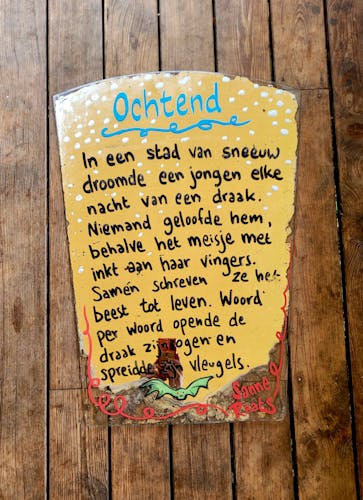 Ochtend
In een stad van sneeuw
droomde een jongen elke
nacht van een draak.
Niemand geloofde hem,
behalve het meisje met
inkt aan haar vingers.
Samen schreven ze het
beest tot leven. Woord
per woord opende de
draak zijn ogen en
spreidde vleugels.
Sanne
Raats